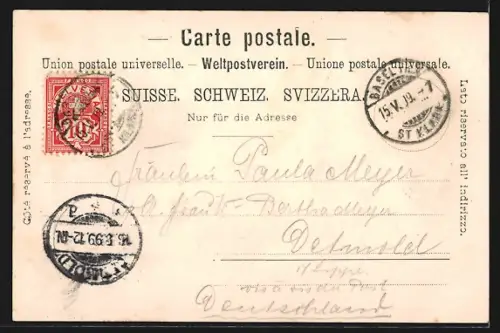 — Carte postale. —
Union postale universelle. — Weltpostverein. — Unione postale universale.
SUISSE. SCHWEIZ. SVIZZERA.
Nur für die Adresse
Côté réservé à l'adresse.
Lato riservato all' indirizzo.
HELVETIA
10
BASEL
15.V.19. -7
ST KLARA
DETMOLD
99.12-
Fräulein Paula Meyer
Frank Bertha Meyer
Detmold
i/Lippe
Deutschland